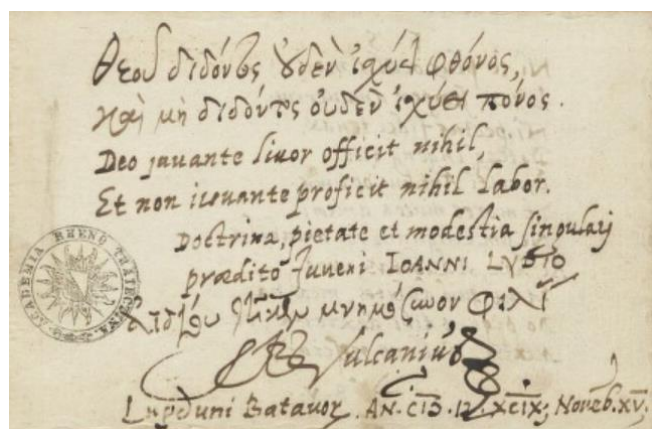 Θεοῦ διδόντος οὐδὲν ἰχύει φθόνος,
Καὶ μὴ διδόντος οὐδὲν ἰχύει πόνος.
Deo juvante livor officit nihil,
Et non iuvante proficit nihil labor.
Doctrina, pietate et modestia singulari
prædito Juveni IOANNI
μνημόσυνον
Vulcanius
Lugduni Batavor. AN. CIƆ. IƆ. XCIX; Noveb. XV.
ACADEMIA RHENO TRAIECTINA